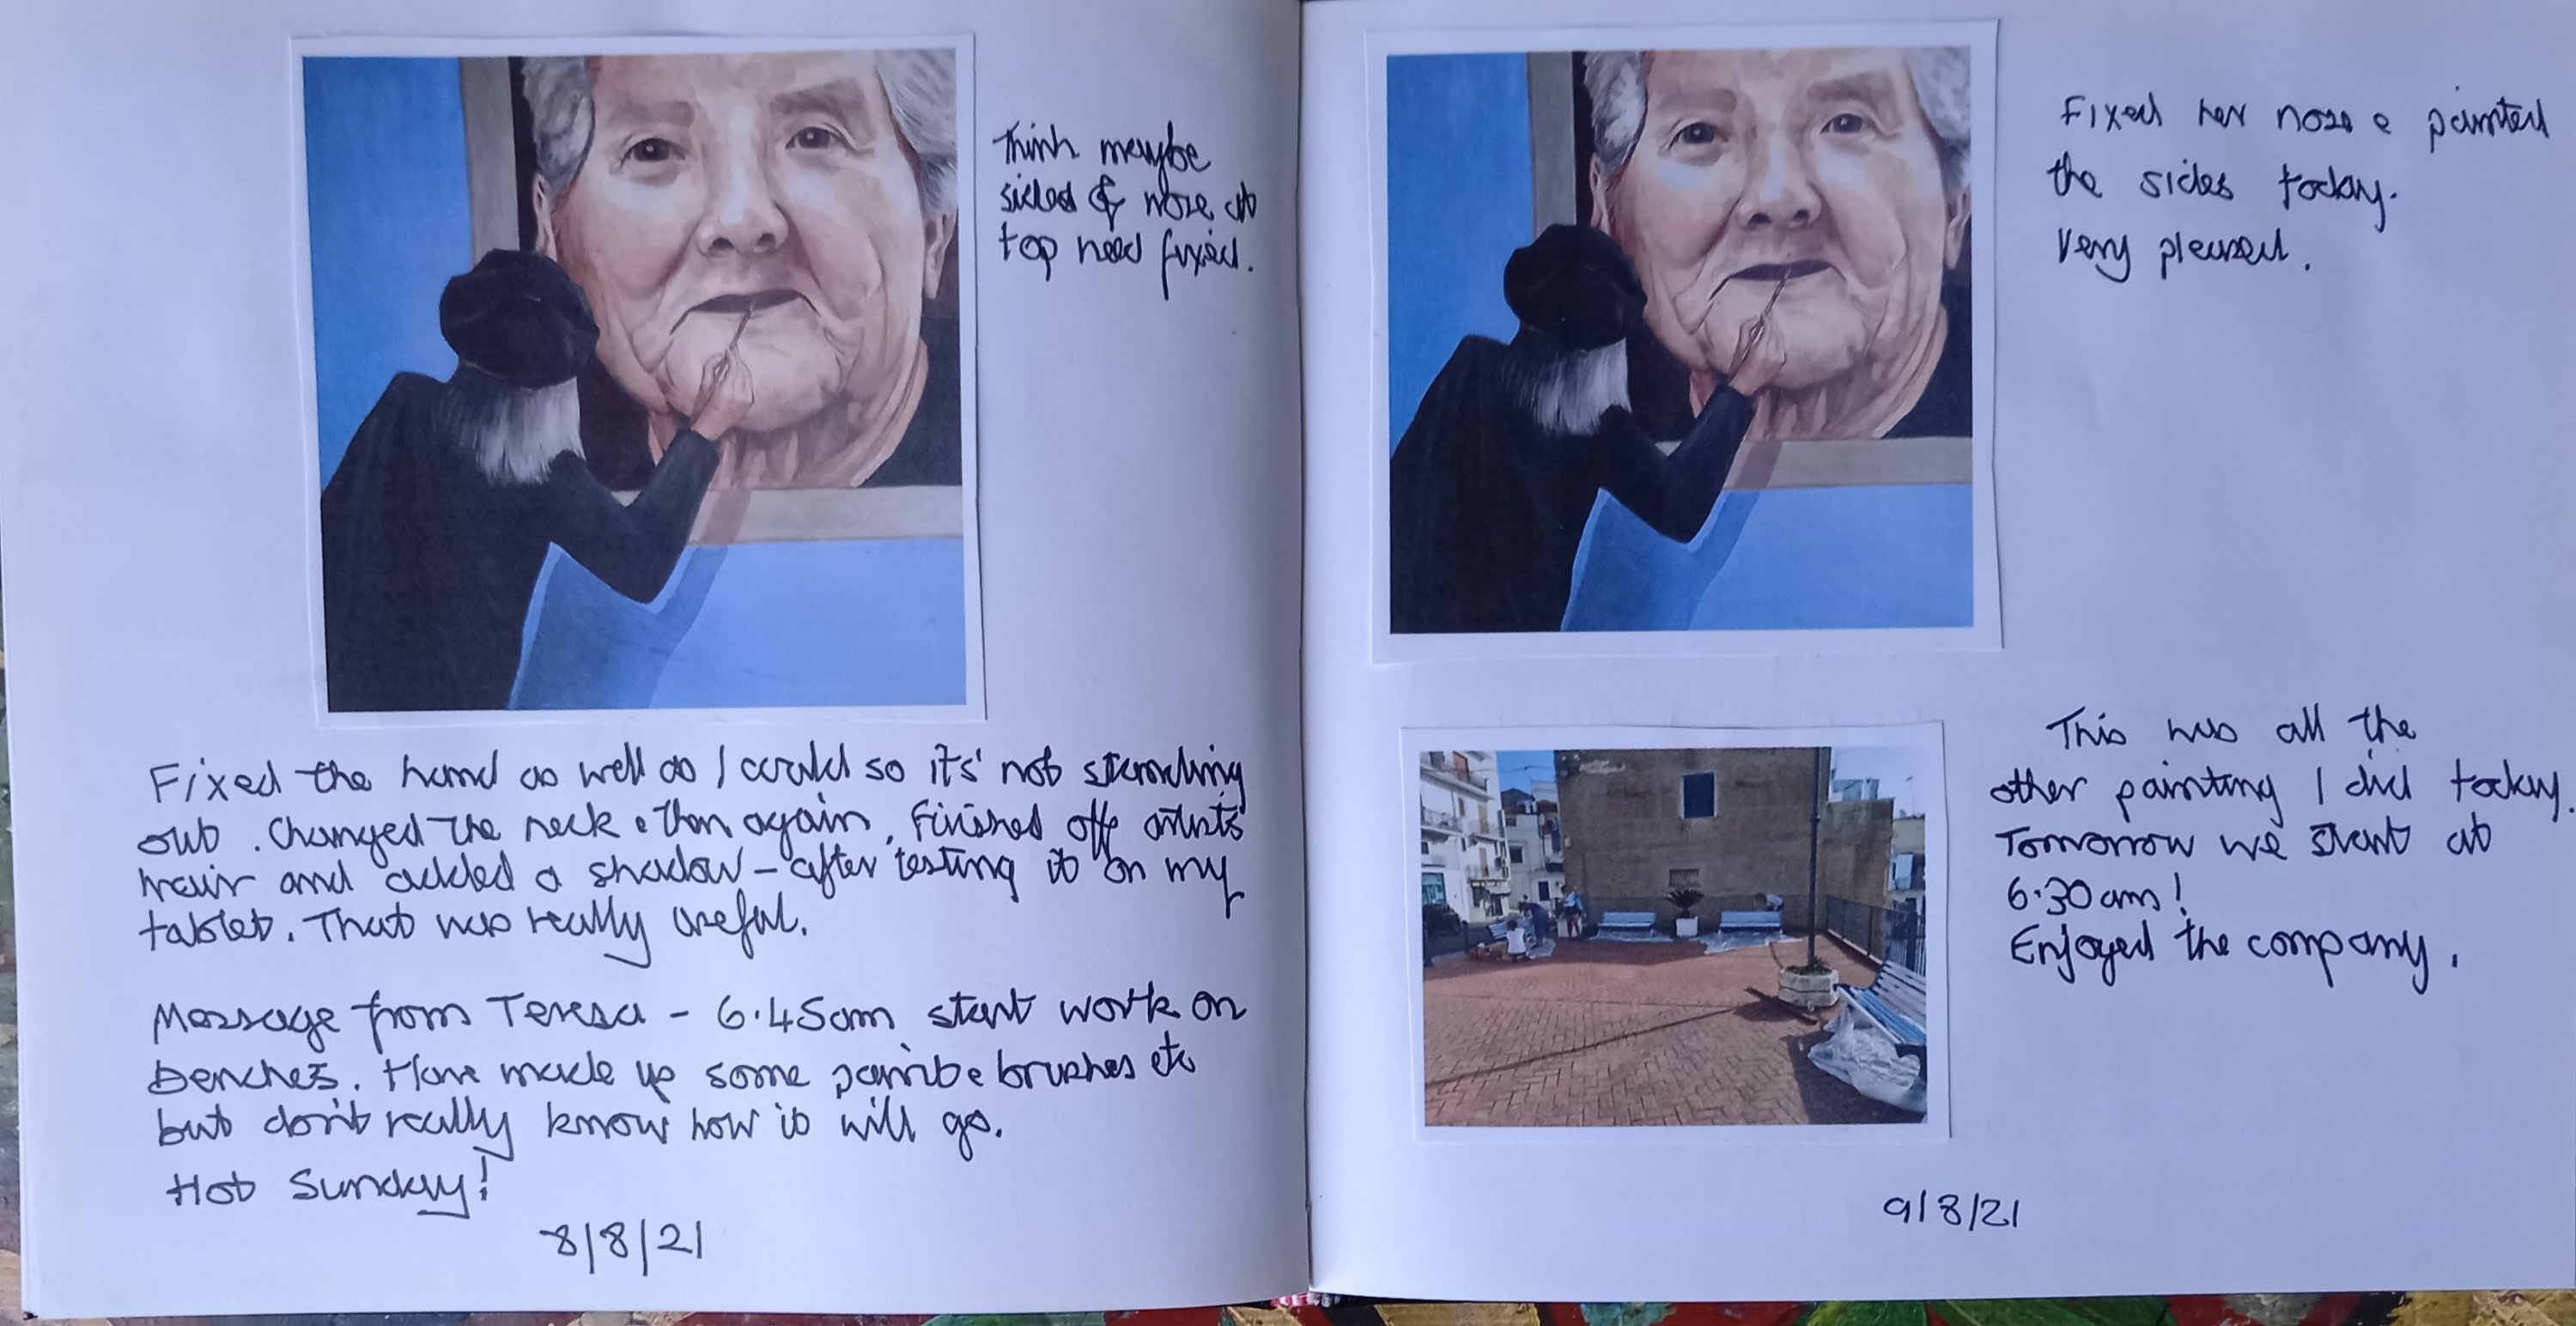 Think maybe
sides of nose at
top need fixed.
Fixed the hand as well as I could so it's not standing
out. Changed the neck & then again. Finished off artists
hair and added a shadow - after testing it on my
tablet. That was really useful.
Message from Teresa - 6.45am start work on
benches. Have made up some paint & brushes etc
but don't really know how it will go.
Hot Sunday!
8/8/21
Fixed her nose & painted
the sides today.
Very pleased.
This was all the
other painting I did today.
Tomorrow we start at
6.30am!
Enjoyed the company.
9/8/21